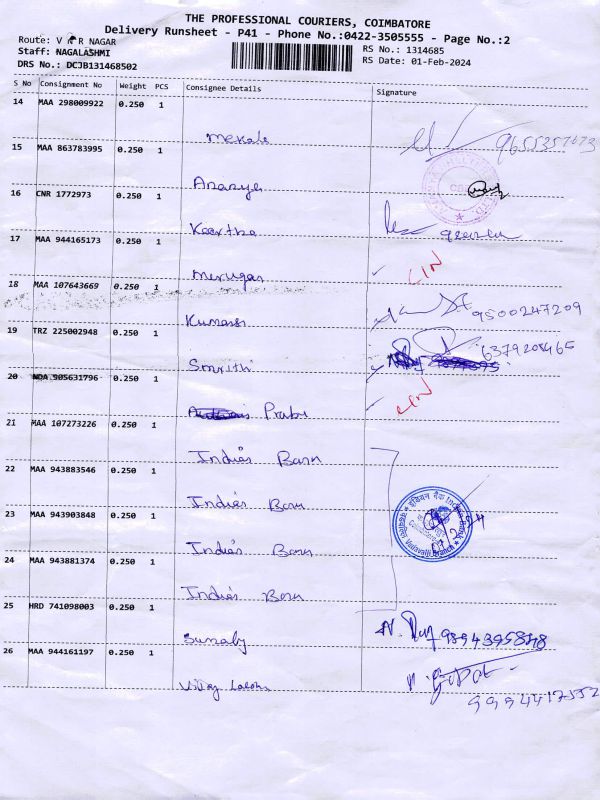 THE PROFESSIONAL COURIERS, COIMBATORE
Delivery Runsheet - P41 - Phone No.:0422-3505555 - Page No.:2
Route: V R NAGAR
Staff: NAGALASHMI
DRS No.: DCJB131468502
RS No.: 1314685
RS Date: 01-Feb-2024
S No Consignment No Weight PCS Consignee Details Signature
14 MAA 298009922 0.250 1
Mekala 9655357673
15 MAA 863783995 0.250 1
Ananya
16 CNR 1772973 0.250 1
Keertha
17 MAA 944165173 0.250 1
Murugan
18 MAA 107643669 0.250 1
Kumaresh 9500247209
19 TRZ 225002948 0.250 1
Smrithi 6379208465
20 NDA 905631796 0.250 1
Prabu
21 MAA 107273226 0.250 1
Indias Bank
22 MAA 943883546 0.250 1
Indias Bank
23 MAA 943903848 0.250 1
Indias Bank
24 MAA 943881374 0.250 1
Indias Bank
25 HRD 741098003 0.250 1
26 MAA 944161197 0.250 1
Vijay